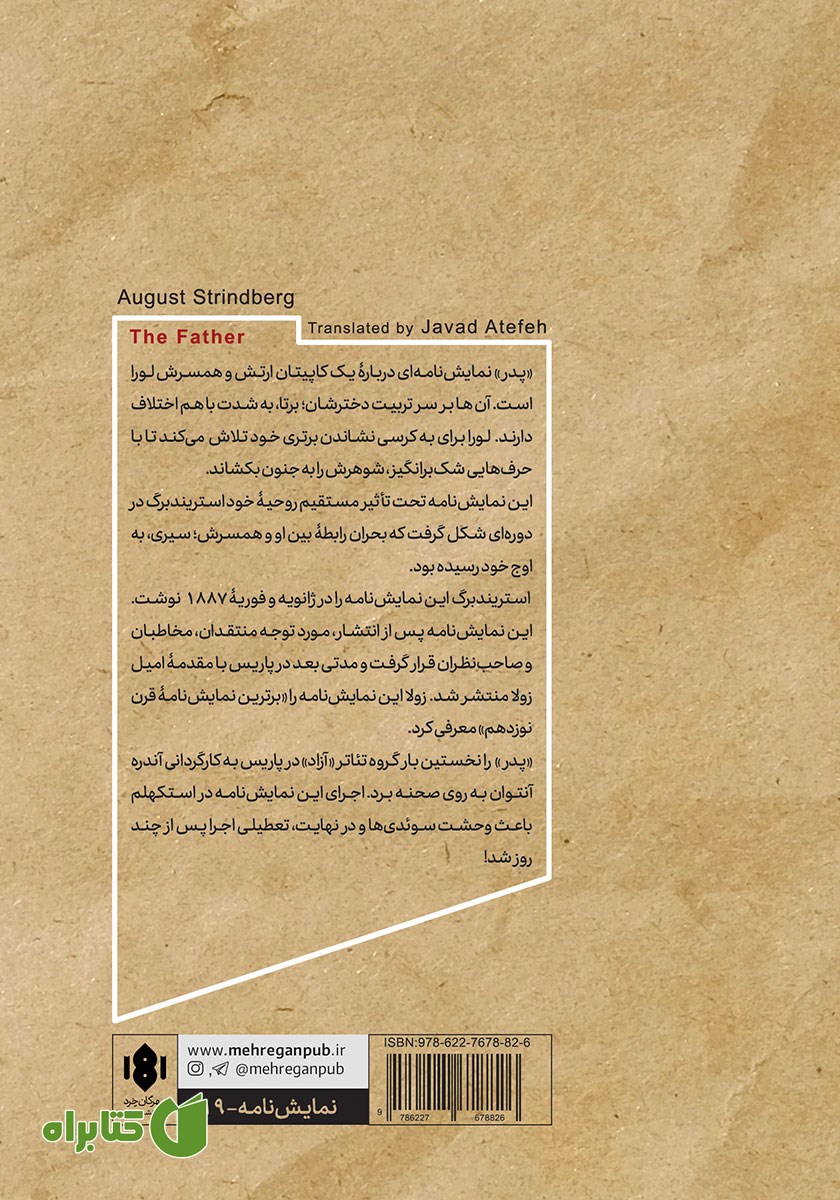 August Strindberg
The Father
Translated by Javad Atefeh
«پدر» نمایش‌نامه‌ای دربارهٔ یک کاپیتان ارتش و همسرش لورا
است. آن ها بر سر تربیت دخترشان؛ برتا، به شدت با هم اختلاف
دارند. لورا برای به کرسی نشاندن برتری خود تلاش می‌کند تا با
حرف‌هایی شک‌برانگیز، شوهرش را به جنون بکشاند.
این نمایش‌نامه تحت تأثیر مستقیم روحیهٔ خود استریندبرگ در
دوره‌ای شکل گرفت که بحران رابطهٔ بین او و همسرش؛ سیری، به
اوج خود رسیده بود.
استریندبرگ این نمایش‌نامه را در ژانویه و فوریهٔ ۱۸۸۷ نوشت.
این نمایش‌نامه پس از انتشار، مورد توجه منتقدان، مخاطبان
و صاحب‌نظران قرار گرفت و مدتی بعد در پاریس با مقدمهٔ امیل
زولا منتشر شد. زولا این نمایش‌نامه را «برترین نمایش‌نامهٔ قرن
نوزدهم» معرفی کرد.
«پدر» را نخستین بار گروه تئاتر «آزاد» در پاریس به کارگردانی آندره
آنتوان به روی صحنه برد. اجرای این نمایش‌نامه در استکهلم
باعث وحشت سوئدی‌ها و در نهایت، تعطیلی اجرا پس از چند
روز شد!
ISBN:978-622-7678-82-6
9 786227 678826
www.mehreganpub.ir
@mehreganpub
نمایش‌نامه-۱۹
مهرگان خرد
کتابراه